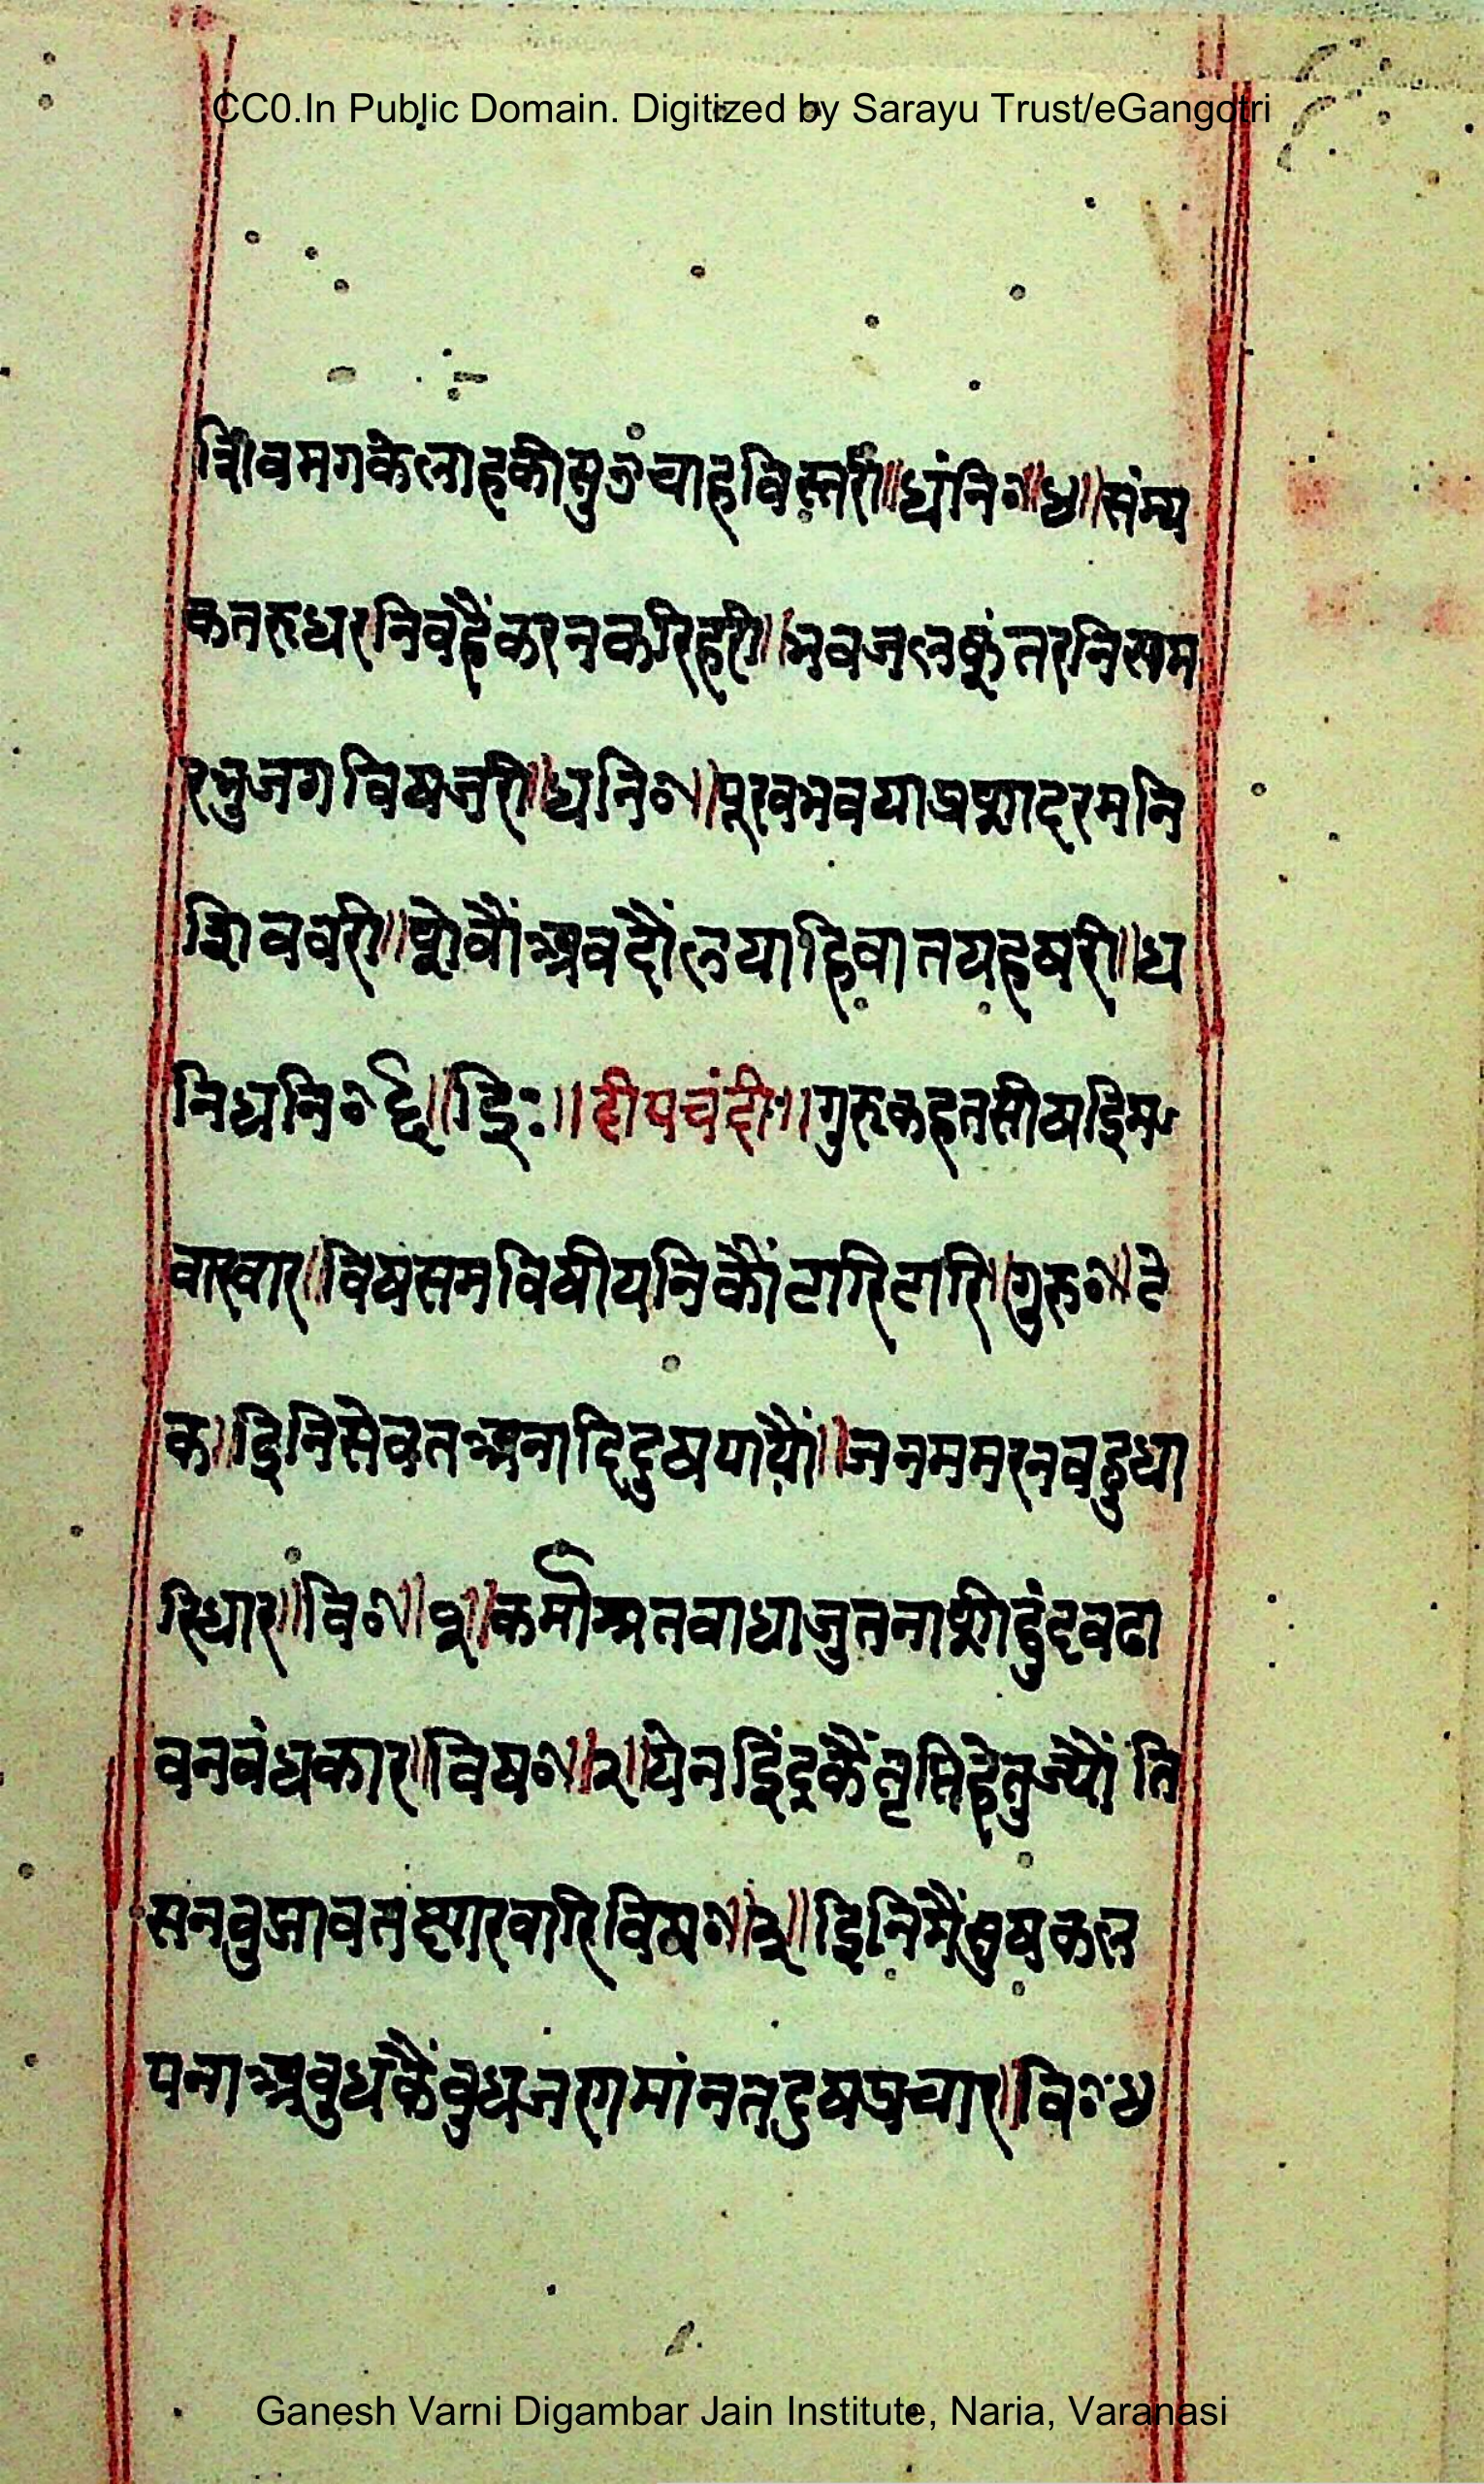 CC0.In Public Domain. Digitized by Sarayu Trust/eGangotri
शिवमगकेलाहकीसुउचाहविस्तरी॥धंनि०॥४॥संम्य
कतरुधरनिवहैंकरनकरिहरी॥भवजलकूंतरनिसम
रभुजगविषजरी॥धनि०॥पूरवभवयाप्रशादरमनि
शिववरी॥षोवौंअवदौंलयाहिवातयहषरी॥ध
निधनि०६॥इिः॥दीपचंदीः॥गुरुकहतसीषइिम
वारवार॥विषसमविषीयनिकौंटारिटारि॥गुरु०॥टे
क॥इिनिसेवतअनादिदुषपायौं॥जनममरनवहुधा
रिधार॥वि०॥१॥कर्माश्रतवाधाजुतनाशीदुंदवढा
वनवंधकार॥विष०॥२॥येनइिंद्रकैंतृप्तिहेतुज्यौं ति
सनवुझावतष्यारवारिविष०॥३॥इिनिमैंसुषकल
पनाअवुधकैंवुधजगमांनतदुषप्रचार॥वि०४
Ganesh Varni Digambar Jain Institute, Naria, Varanasi